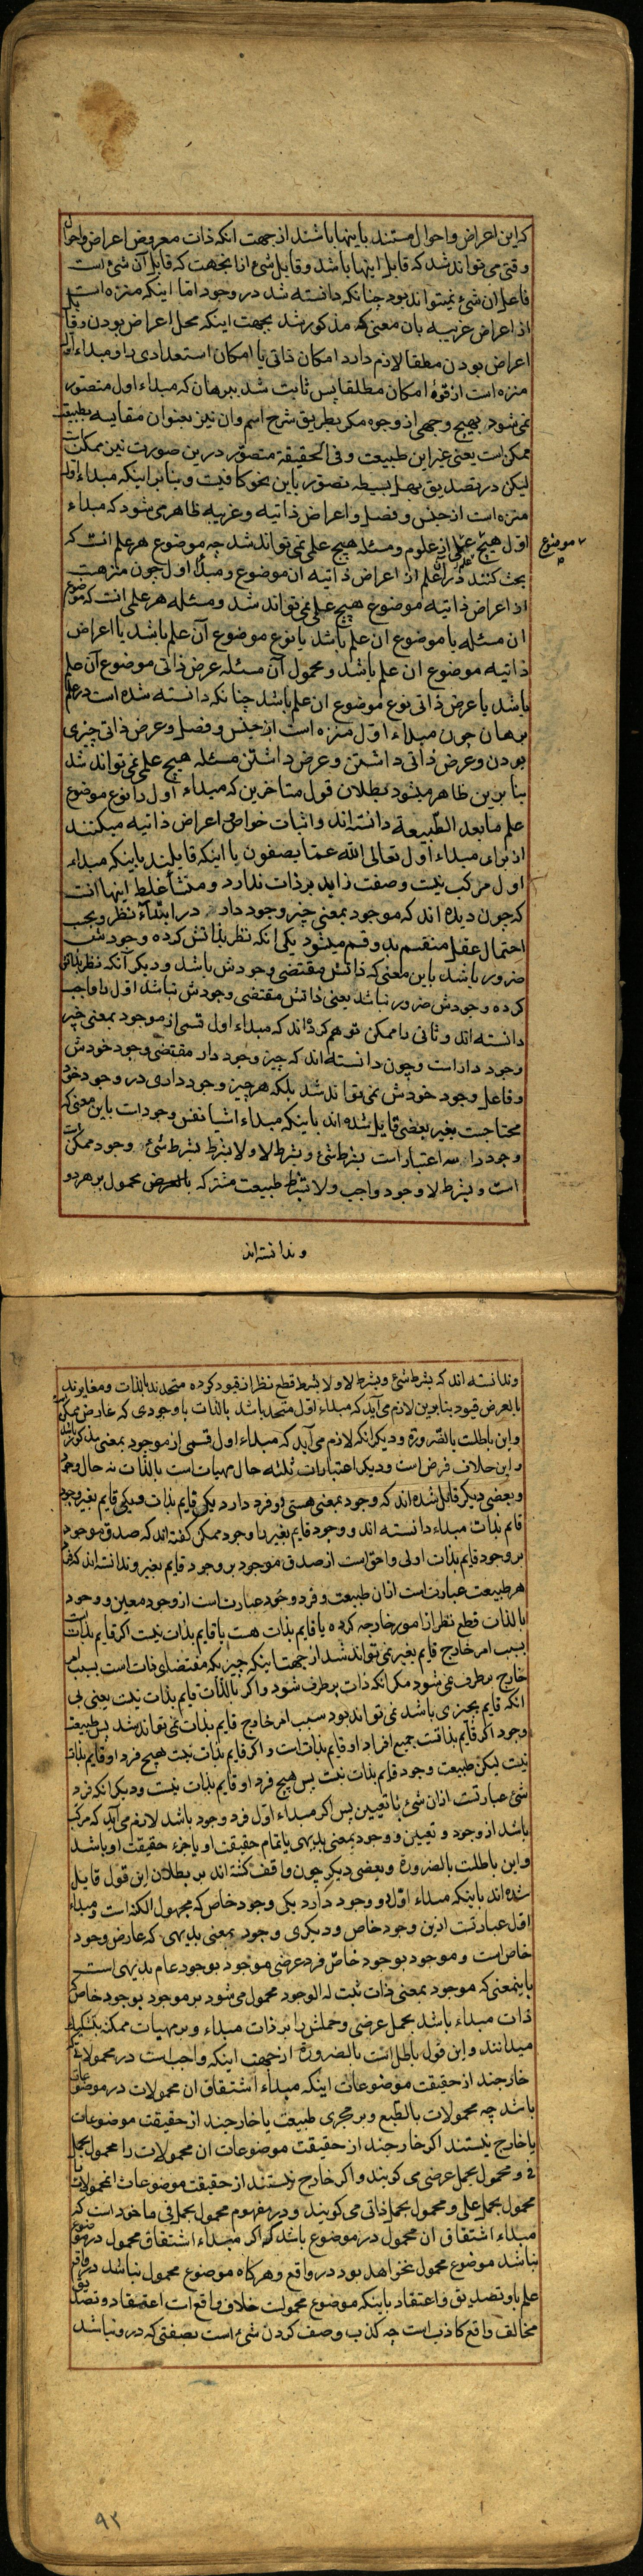 که این اعراض و احوال مستند باینها باشند از جهت انکه ذات معروض اعراض و احوال
وقتی می تواند شد که قابل اینها باشد و قابل شئ از انجهت که قابل آن شئ است
فاعل ان شئ نمیتواند بود چنانکه دانسته شد در وجود اما اینکه منزه است
از اعراض غریبه بان معنی که مذکور شد بجهت اینکه محل اعراض بودن و قابل
اعراض بودن مطلقا لازم دارد امکان ذاتی یا امکان استعدادی را و مبداء اول
منزه است از قوهٔ امکان مطلقا پس ثابت شد ببرهان که مبداء اول متصور
نمی شود بهیچ وجهی از وجوه مکر بطریق شرح اسم وان نیز بعنوان مقایسه بطبیعت
ممکن است یعنی غیر این طبیعت و فی الحقیقة متصور درین صورت نیز ممکنست
لیکن در تصدیق بهل بسیطه تصور باین نحو کافیت و بنا بر اینکه مبداء اول
منزه است از جنس و فصل و اعراض ذاتیه و غریبه ظاهر می شود که مبداء
اول هیچ علمی از علوم و مسئله هیچ علمی نمی تواند شد چه موضوع هر علم انست که
موضوع
بحث کنند در ان علم از اعراض ذاتیه ان موضوع و مبداء اول چون منزهست
از اعراض ذاتیه موضوع هیچ علمی نمی تواند شد و مسئله هر علمی انست که موضوع
ان مسئله یا موضوع ان علم باشد یا نوع موضوع آن علم باشد یا اعراض
ذاتیه موضوع ان علم باشد و محمول آن مسئله عرض ذاتی موضوع آن علم
باشد یا عرض ذاتی نوع موضوع ان علم باشد چنانکه دانسته شده است در علم
برهان چون مبداء اول منزه است از جنس و فصل و عرض ذاتی چیزی
بودن و عرض ذاتی داشتن و عرض داشتن مسئله هیچ علمی نمی تواند شد
بنا برین ظاهر میشود بطلان قول متاخرین که مبداء اول را نوع موضوع
علم مابعد الطبیعة دانسته اند و اثبات خواص و اعراض ذاتیه میکنند
از برای مبداء اول تعالی الله عما یصفون با اینکه قایلند باینکه مبداء
اول مرکب نیست و صفت زاید بر ذات ندارد و منشأ غلط اینها انست
که چون دیده اند که موجود بمعنی چیز وجود دار در ابتداء نظر و بحب
احتمال عقل منقسم بدو قسم میشود یکی انکه نظر بذاتش کرده وجودش
ضرور باشد باین معنی که ذاتش مقتضی وجودش باشد و دیگر آنکه نظر بذاتش
کرده وجودش ضرور نباشد یعنی ذاتش مقتضی وجودش نباشد اول را واجب
دانسته اند و ثانی را ممکن توهم کرده اند که مبداء اول قسمی از موجود بمعنی چیز
وجود دار است و چون دانسته اند که چیز وجود دار مقتضی وجود خودش
و فاعل وجود خودش نمی تواند شد بلکه هر چیز وجود داری در وجود خود
محتاجست بغیر بعضی قایل شده اند باینکه مبداء اشیا نفس وجودات باین معنی که
وجود را سه اعتبار است بشرط شئ و بشرط لا و لا بشرط بشرط شئ وجود ممکنات
است و بشرط لا وجود واجب و لا بشرط طبیعت مشترکه بالعرض محمول بر هر دو
و ندانسته اند
و ندانسته اند که بشرط شئ و بشرط لا و لا بشرط قطع نظر از قیود کرده متحدند بالذات و مغایرند
بالعرض قیود بنا برین لازم می آید که مبداء اول متحد باشد بالذات با وجودی که عارض ممکن
و این باطلت بالضرورة و دیکر انکه لازم می آید که مبداء اول قسمی از موجود بمعنی مذکور
و این خلاف فرض است و دیکر اعتبارات ثلثه حال مهیات است بالذات نه حال وجود
و بعضی دیکر قائل شده اند که وجود بمعنی هستی دو فرد دارد یکی قایم بذات و یکی قایم بغیر وجود
قائم بذات مبداء دانسته اند و وجود قایم بغیر را وجود ممکن گفته اند که صدق موجود
بر وجود قایم بذات اولی و احق است از صدق موجود بر وجود قایم بغیر و ندانسته اند که
هر طبیعت عبارت است از ان طبیعت و فرد وجود عبارت است از وجود معین و وجود
بالذات قطع نظر از امور خارجه کرده یا قایم بذات هست یا قایم بذات نیت اکر قایم بذات
بسبب امر خارج قایم بغیر نمی تواند شد از جهت اینکه چیزیکه مقتضای ذات است بسبب امر
خارج برطرف نمی شود مکر انکه ذات برطرف شود و اکر بالذات قایم بذات نیت یعنی بی
انکه قایم بچیزی باشد نمی تواند بود سبب امر خارج قایم بذات نمی تواند شد پس طبیعت
وجود اکر قایم بذاتست جمیع افراد او قایم بذات است و اکر قایم بذات نیت هیچ فرد او قایم بذات
نیت لیکن طبیعت وجود قایم بذات نیت پس هیچ فرد او قایم بذات نیست و دیکر انکه فرد
شئ عبارتست از ان شئ با تعیین پس اکر مبداء اول فرد وجود باشد لازم می آید که مرکب
باشد از وجود و تعیین و وجود بمعنی بدیهی یا تمام حقیقت او یا جزء حقیقت او باشد
و این باطلت بالضرورة و بعضی دیکر چون واقف کشته اند بر بطلان این قول قایل
شده اند باینکه مبداء اول دو وجود دارد یکی وجود خاص که مجهول الکنه است و مبداء
اول عبارتست ازین وجود خاص و دیکری وجود بمعنی بدیهی که عارض وجود
خاص است و موجود بوجود خاص فرد عرضی موجود بوجود عام بدیهی است
باینمعنی که موجود بمعنی ذات ثبت له الوجود محمول می شود بر موجود بوجود خاص که
ذات مبداء باشد بحمل عرضی و حملش را بر ذات مبداء و بر مهیات ممکنه بتشکیک
میدانند و این قول باطل است بالضرورة از جهت اینکه واجب است در محمولاتی که
خارجند از حقیقت موضوعات اینکه مبداء اشتقاق ان محمولات در موضوعات
باشد چه محمولات بالطبع و بر مجری طبیعت یا خارجند از حقیقت موضوعات
یا خارج نیستند اکر خارجند از حقیقت موضوعات ان محمولات را محمول بحمل
فی و محمول بحمل عرضی می کویند و اکر خارج نیستند از حقیقت موضوعات انمحمولات را
محمول بحمل علی و محمول بحمل ذاتی می کویند و در مفهوم محمول بحمل فی ماخوذ است که
مبداء اشتقاق ان محمول در موضوع باشد که اکر مبداء اشتقاق محمول در موضوع
نباشد موضوع محمول نخواهد بود در واقع و هرکاه موضوع محمول نباشد در واقع
علم باو تصدیق و اعتقاد باینکه موضوع محمولست خلاف واقع است اعتقاد و تصدیق
مخالف واقع کاذب است چه کذب وصف کردن شئ است بصفتی که درو نباشد
۹۲